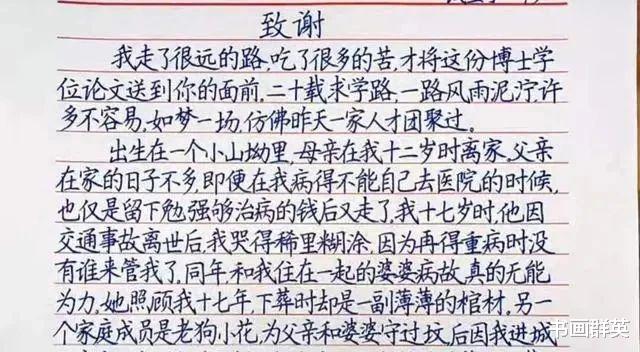 致谢
我走了很远的路，吃了很多的苦，才将这份博士学
位论文送到你的面前，二十载求学路，一路风雨泥泞，许
多不容易，如梦一场，仿佛昨天一家人才团聚过。
出生在一个小山坳里，母亲在我十二岁时离家，父亲
在家的日子不多，即便在我病得不能自己去医院的时候，
也仅是留下勉强够治病的钱后又走了，我十七岁时，他因
交通事故离世后，我哭得稀里糊涂，因为再得重病时没
有谁来管我了，同年，和我住在一起的婆婆病故，真的无能
为力，她照顾我十七年，下葬时却是一副薄薄的棺材，另一
个家庭成员是老狗小花，为父亲和婆婆守过坟，后因我进城
书画群英